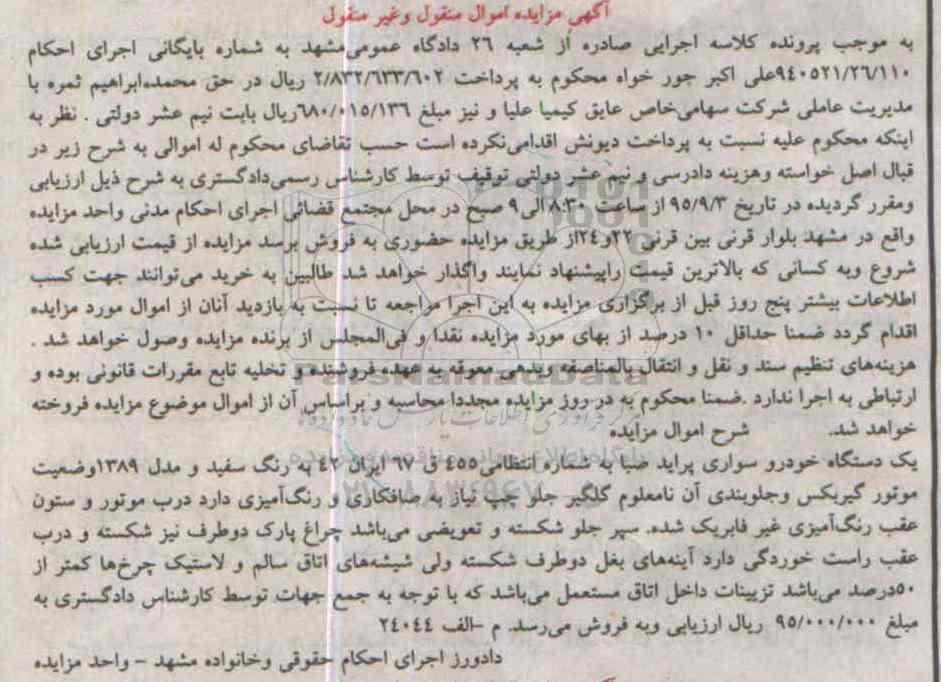 آگهی مزایده اموال منقول وغیر منقول
به موجب پرونده کلاسه اجرایی صادره از شعبه ۲۶ دادگاه عمومی‌مشهد به شماره بایگانی اجرای احکام
۹۴۰۵۲۱/۲۶/۱۱۰علی اکبر جور خواه محکوم به پرداخت ۲/۸۳۲/۶۳۳/۶۰۲ ریال در حق محمدابراهیم ثمره با
مدیریت عاملی شرکت سهامی‌خاص عایق کیمیا علیا و نیز مبلغ ۶۸۰/۰۱۵/۱۳۶ریال بابت نیم عشر دولتی . نظر به
اینکه محکوم علیه نسبت به پرداخت دیونش اقدامی‌نکرده است حسب تقاضای محکوم له اموالی به شرح زیر در
قبال اصل خواسته وهزینه دادرسی و نیم عشر دولتی توقیف توسط کارشناس رسمی‌دادگستری به شرح ذیل ارزیابی
ومقرر گردیده در تاریخ ۹۵/۹/۳ از ساعت ۸:۳۰ الی۹ صبح در محل مجتمع قضائی اجرای احکام مدنی واحد مزایده
واقع در مشهد بلوار قرنی بین قرنی ۲۲و۲۴از طریق مزایده حضوری به فروش برسد مزایده از قیمت ارزیابی شده
شروع وبه کسانی که بالاترین قیمت راپیشنهاد نمایند واگذار خواهد شد طالبین به خرید می‌توانند جهت کسب
اطلاعات بیشتر پنج روز قبل از برگزاری مزایده به این اجرا مراجعه تا نسبت به بازدید آنان از اموال مورد مزایده
اقدام گردد ضمنا حداقل ۱۰ درصد از بهای مورد مزایده نقدا و فی‌المجلس از برنده مزایده وصول خواهد شد .
هزینه‌های تنظیم سند و نقل و انتقال بالمناصفه وبدهی معوقه به عهده فروشنده و تخلیه تابع مقررات قانونی بوده و
ارتباطی به اجرا ندارد .ضمنا محکوم به در روز مزایده مجددا محاسبه و براساس آن از اموال موضوع مزایده فروخته
خواهد شد. شرح اموال مزایده
یک دستگاه خودرو سواری پراید صبا به شماره انتظامی۴۵۵ ق ۶۷ ایران ۴۲ به رنگ سفید و مدل ۱۳۸۹وضعیت
موتور گیربکس وجلوبندی آن نامعلوم گلگیر جلو چپ نیاز به صافکاری و رنگ‌آمیزی دارد درب موتور و ستون
عقب رنگ‌آمیزی غیر فابریک شده. سپر جلو شکسته و تعویضی می‌باشد چراغ پارک دوطرف نیز شکسته و درب
عقب راست خوردگی دارد آینه‌های بغل دوطرف شکسته ولی شیشه‌های اتاق سالم و لاستیک چرخ‌ها کمتر از
۵۰درصد می‌باشد تزیینات داخل اتاق مستعمل می‌باشد که با توجه به جمع جهات توسط کارشناس دادگستری به
مبلغ ۹۵/۰۰۰/۰۰۰ ریال ارزیابی وبه فروش می‌رسد. م -الف ۲۴۰۴۴
دادورز اجرای احکام حقوقی وخانواده مشهد - واحد مزایده
ParsNamadData